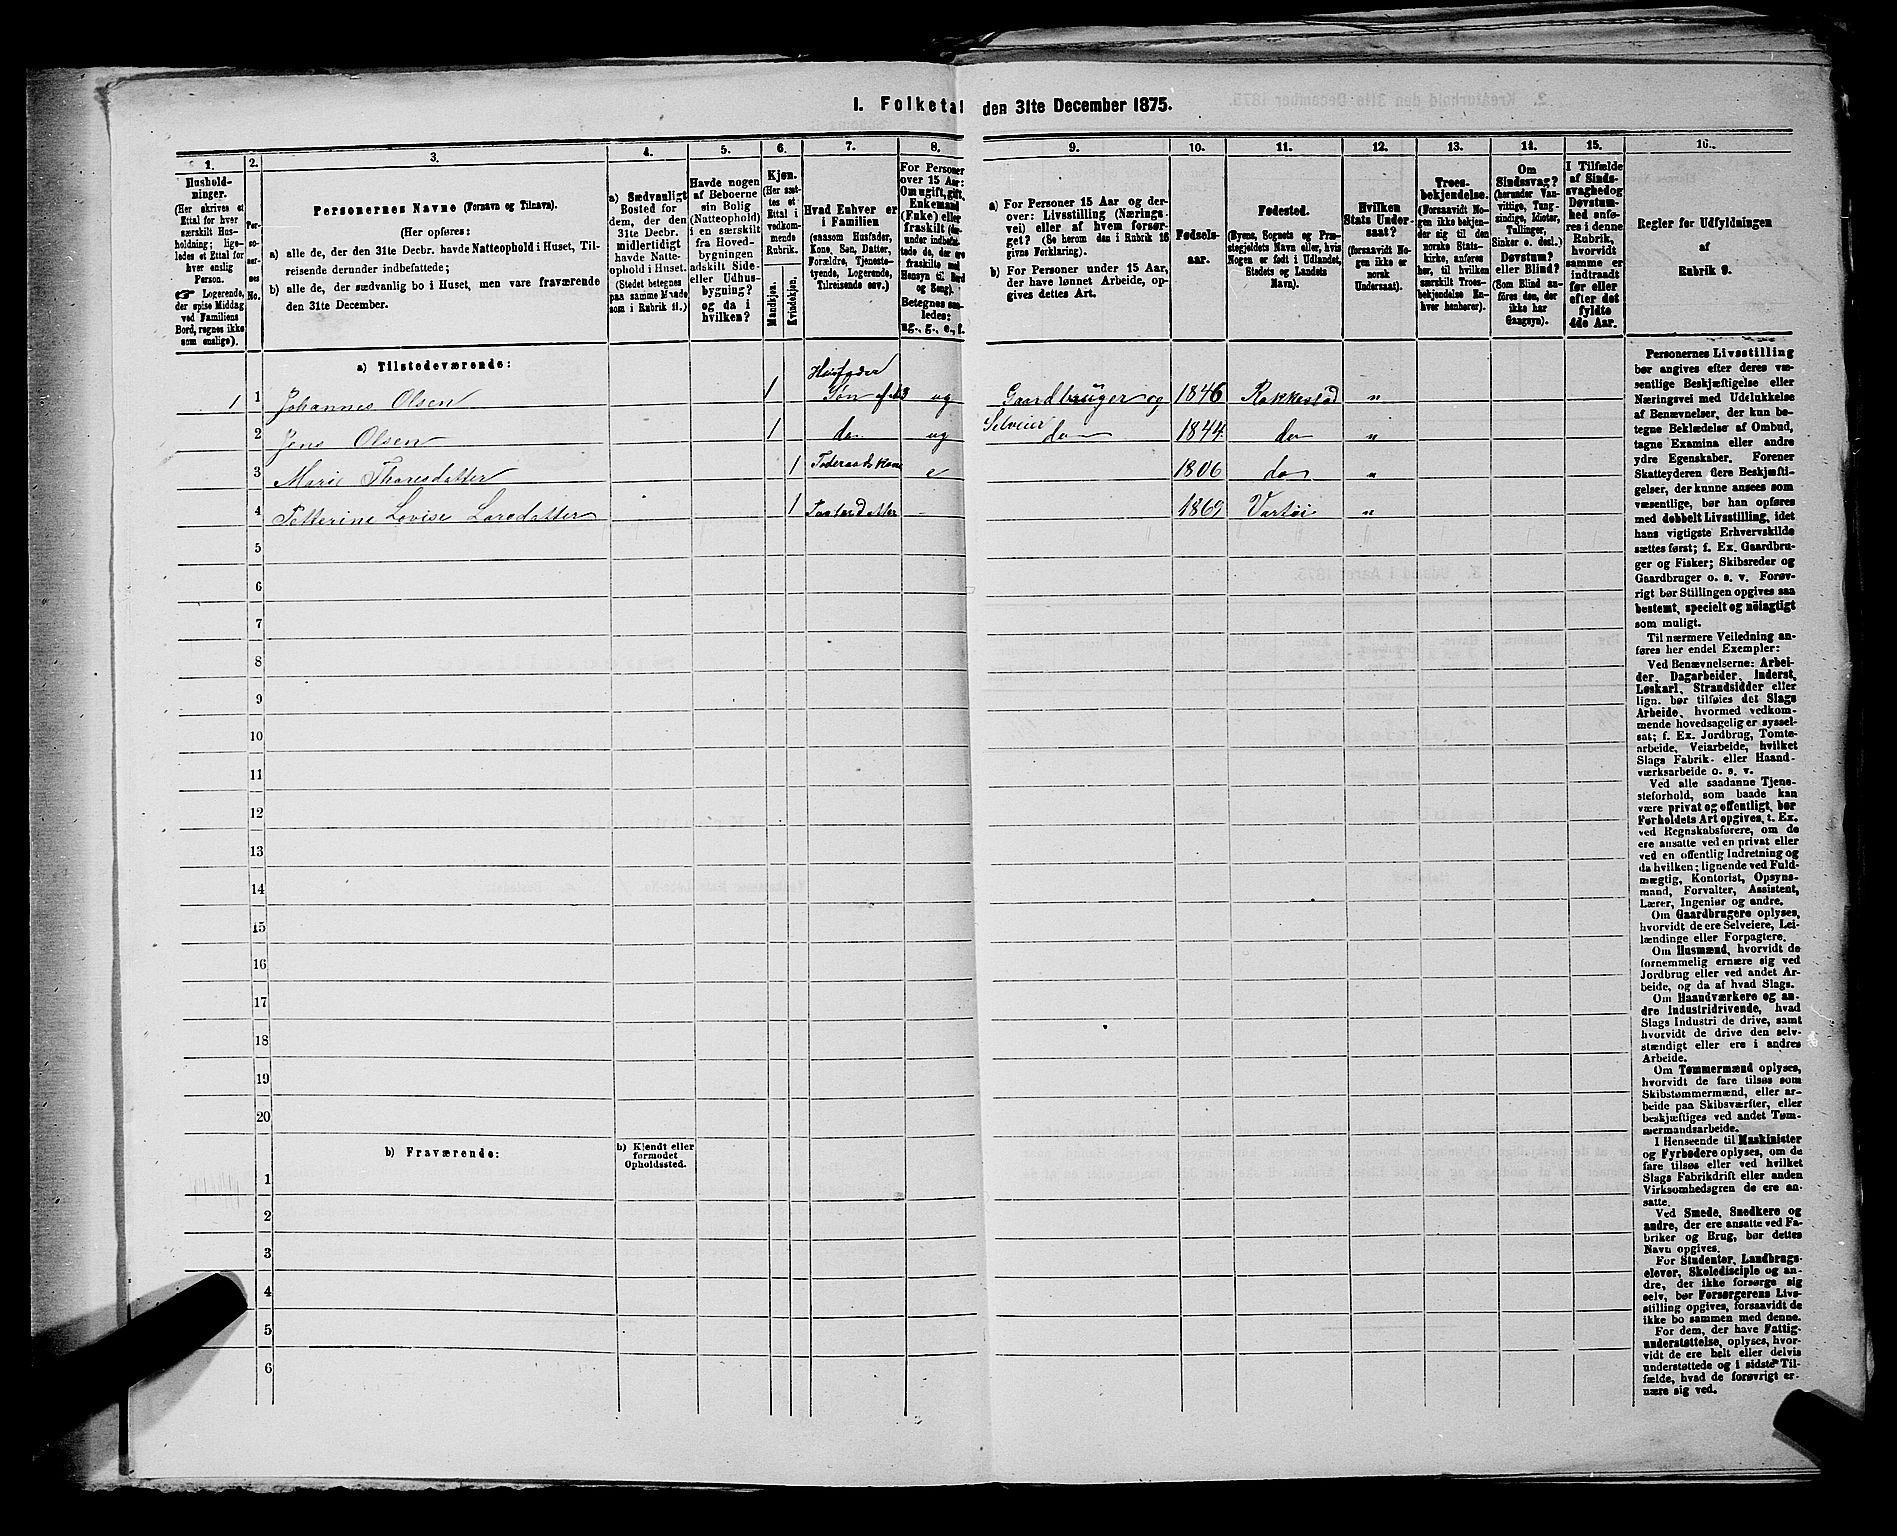 I. Folketal den 31te December 1875.
1.
2.
3.
4.
5.
6.
7.
8.
9.
10.
11.
12.
13.
14.
15.
16.
Hushold-
ninger.
(Her skrives et
Ettal for hver
særskilt Hus-
holdning; lige-
ledes et Ettal for
hver enslig
Person.
☞ Logerende,
der spise Middag
ved Familiens
Bord, regnes ikke
som enslige).
Per-
so-
ner-
nes
No.
Personernes Navne (Fornavn og Tilnavn).
(Her opføres:
a) alle de, der den 31te Decbr. havde Natteophold i Huset, Til-
reisende derunder indbefattede;
b) alle de, der sædvanlig bo i Huset, men vare fraværende
den 31te December.
a) Sædvanligt
Bosted for
dem, der den
31te Decbr.
midlertidigt
havde Natte-
ophold i Huset.
(Stedet betegnes
paa samme Maade
som i Rubrik 11.)
Havde nogen
af Beboerne
sin Bolig
(Natteophold)
i en særskilt
fra Hoved-
bygningen
adskilt Side-
eller Udhus-
bygning?
og da i
hvilken?
Kjøn.
(Her sæt-
tes et
Ettal i
vedkom-
mende
Rubrik.
Mandkjøn.
Kvindekjøn.
Hvad Enhver er
i Familien
(saasom Husfader,
Kone, Søn, Datter,
Forældre, Tjeneste-
tyende, Logerende,
Tilreisende osv.)
For Personer
over 15 Aar:
Om ugift, gift,
Enkemand
(Enke) eller
fraskilt
Betegnes saa-
ledes:
ug., g., e., f.
a) For Personer 15 Aar og der-
over: Livsstilling (Nærings-
vei) eller af hvem forsør-
get? (Se herom den i Rubrik 16
givne Forklaring).
b) For Personer under 15 Aar,
der have lønnet Arbeide, op-
gives dettes Art.
Fødsels-
aar.
Fødested.
(Byens, Sognets og Præ-
stegjeldets Navn eller, hvis
Nogen er født i Udlandet,
Stedets og Landets
Navn).
Hvilken
Stats Under-
saat?
(forsaavidt No-
gen ikke er
norsk
Undersaat).
Troes-
bekjendelse.
(Forsaavidt No-
gen ikke bekjen-
der sig til den
norske Stats-
kirke, anføres
her, til hvilken
særskilt Troes-
bekjendelse En-
hver henhører).
Om
Sindssvag?
(herunder Van-
vittige, Tung-
sindige, Idioter,
Tullinger,
Sinker o. desl.).
Døvstum?
eller Blind?
(Som Blind an-
føres den, der
ikke har
Gangsyn).
I Tilfælde
af Sinds-
svaghed og
Døvstum-
hed anfø-
res i denne
Rubrik,
hvorvidt
samme er
indtraadt
før eller
efter det
fyldte
4de Aar.
Regler før Udfyldningen
af
Rubrik 9.
a) Tilstedeværende:
1 1 Johannes Olsen 1 Husfader Søn af No 3 ug Gaardbruger og Selveier 1846 Rakkestad "
2 Jens Olsen 1 do ug do 1844 do "
3 Marie Thoresdatter 1 Føderaadskone e 1806 do "
4 Petterine Lovise Larsdatter 1 Fosterdatter - 1869 "
5
6
7
8
9
10
11
12
13
14
15
16
17
18
19
20
b) Fraværende:
b) Kjendt eller
formodet
Opholdssted.
1
2
3
4
5
6
Personernes Livsstilling
bør angives efter deres væ-
sentlige Beskjæftigelse eller
Næringsvei med Udelukkelse
af Benævnelser, der kun be-
tegne Beklædelse af Ombud,
tagne Examina eller andre
ydre Egenskaber. Forener
Skatteyderen flere Beskjæfti-
gelser, der kunne ansees som
væsentlige, bør han opføres
med dobbelt Livsstilling, idet
hans vigtigste Erhvervskilde
sættes først; f. Ex. Gaardbru-
ger og Fisker; Skibsreder og
Gaardbruger o. s. v. Forøv-
rigt bør Stillingen opgives saa
bestemt, specielt og nöiagtigt
som muligt.
Til nærmere Veiledning an-
føres her endel Exempler:
Ved Benævnelserne: Arbei-
der, Dagarbeider, Inderst,
Løskarl, Strandsidder eller
lign. bør tilføies det Slags
Arbeide, hvormed vedkom-
mende hovedsagelig er syssel-
sat; f. Ex. Jordbrug, Tomte-
arbeide, Veiarbeide, hvilket
Slags Fabrik- eller Haand-
værksarbeide o. s. v.
Ved alle saadanne Tjene-
steforhold, som baade kan
være privat og offentligt, bør
Forholdets Art opgives, t. Ex.
ved Regnskabsførere, om de
ere ansatte ved en privat eller
ved en offentlig Indretning og
da hvilken; lignende ved Fuld-
mægtig, Kontorist, Opsyns-
mand, Forvalter, Assistent,
Lærer, Ingeniør og andre.
Om Gaardbrugere oplyses,
hvorvidt de ere Selveiere, Lei-
lændinge eller Forpagtere.
Om Husmænd, hvorvidt de
fornemmelig ernære sig ved
Jordbrug eller ved andet Ar-
beide, og da af hvad Slags.
Om Haandværkere og an-
dre Industridrivende, hvad
Slags Industri de drive, samt
hvorvidt de drive den selv-
stændigt eller ere i andres
Arbeide.
Om Tømmermænd oplyses,
hvorvidt de fare tilsøs som
Skibstømmermænd, eller ar-
beide paa Skibsværfter, eller
beskjæftiges ved andet Tøm-
mermandsarbeide.
I Henseende til Maskinister
og Fyrbødere oplyses, om de
fare tilsøs eller ved hvilket
Slags Fabrikdrift eller anden
Virksomhedsgren de ere an-
satte.
Ved Smede, Snedkere og
andre, der ere ansatte ved Fa-
briker og Brug, bør dettes
Navn opgives.
For Studenter, Landbrugs-
elever, Skoledisciple og an-
dre, der ikke forsørge sig
selv, bør Forsørgerens Livs-
stilling opgives, forsaavidt de
ikke bo sammen med denne.
For dem, der have Fattig-
understøttelse, oplyses, hvor-
vidt de ere helt eller delvis
understøttede og i sidste Til-
fælde, hvad de forøvrigt er-
nære sig ved.